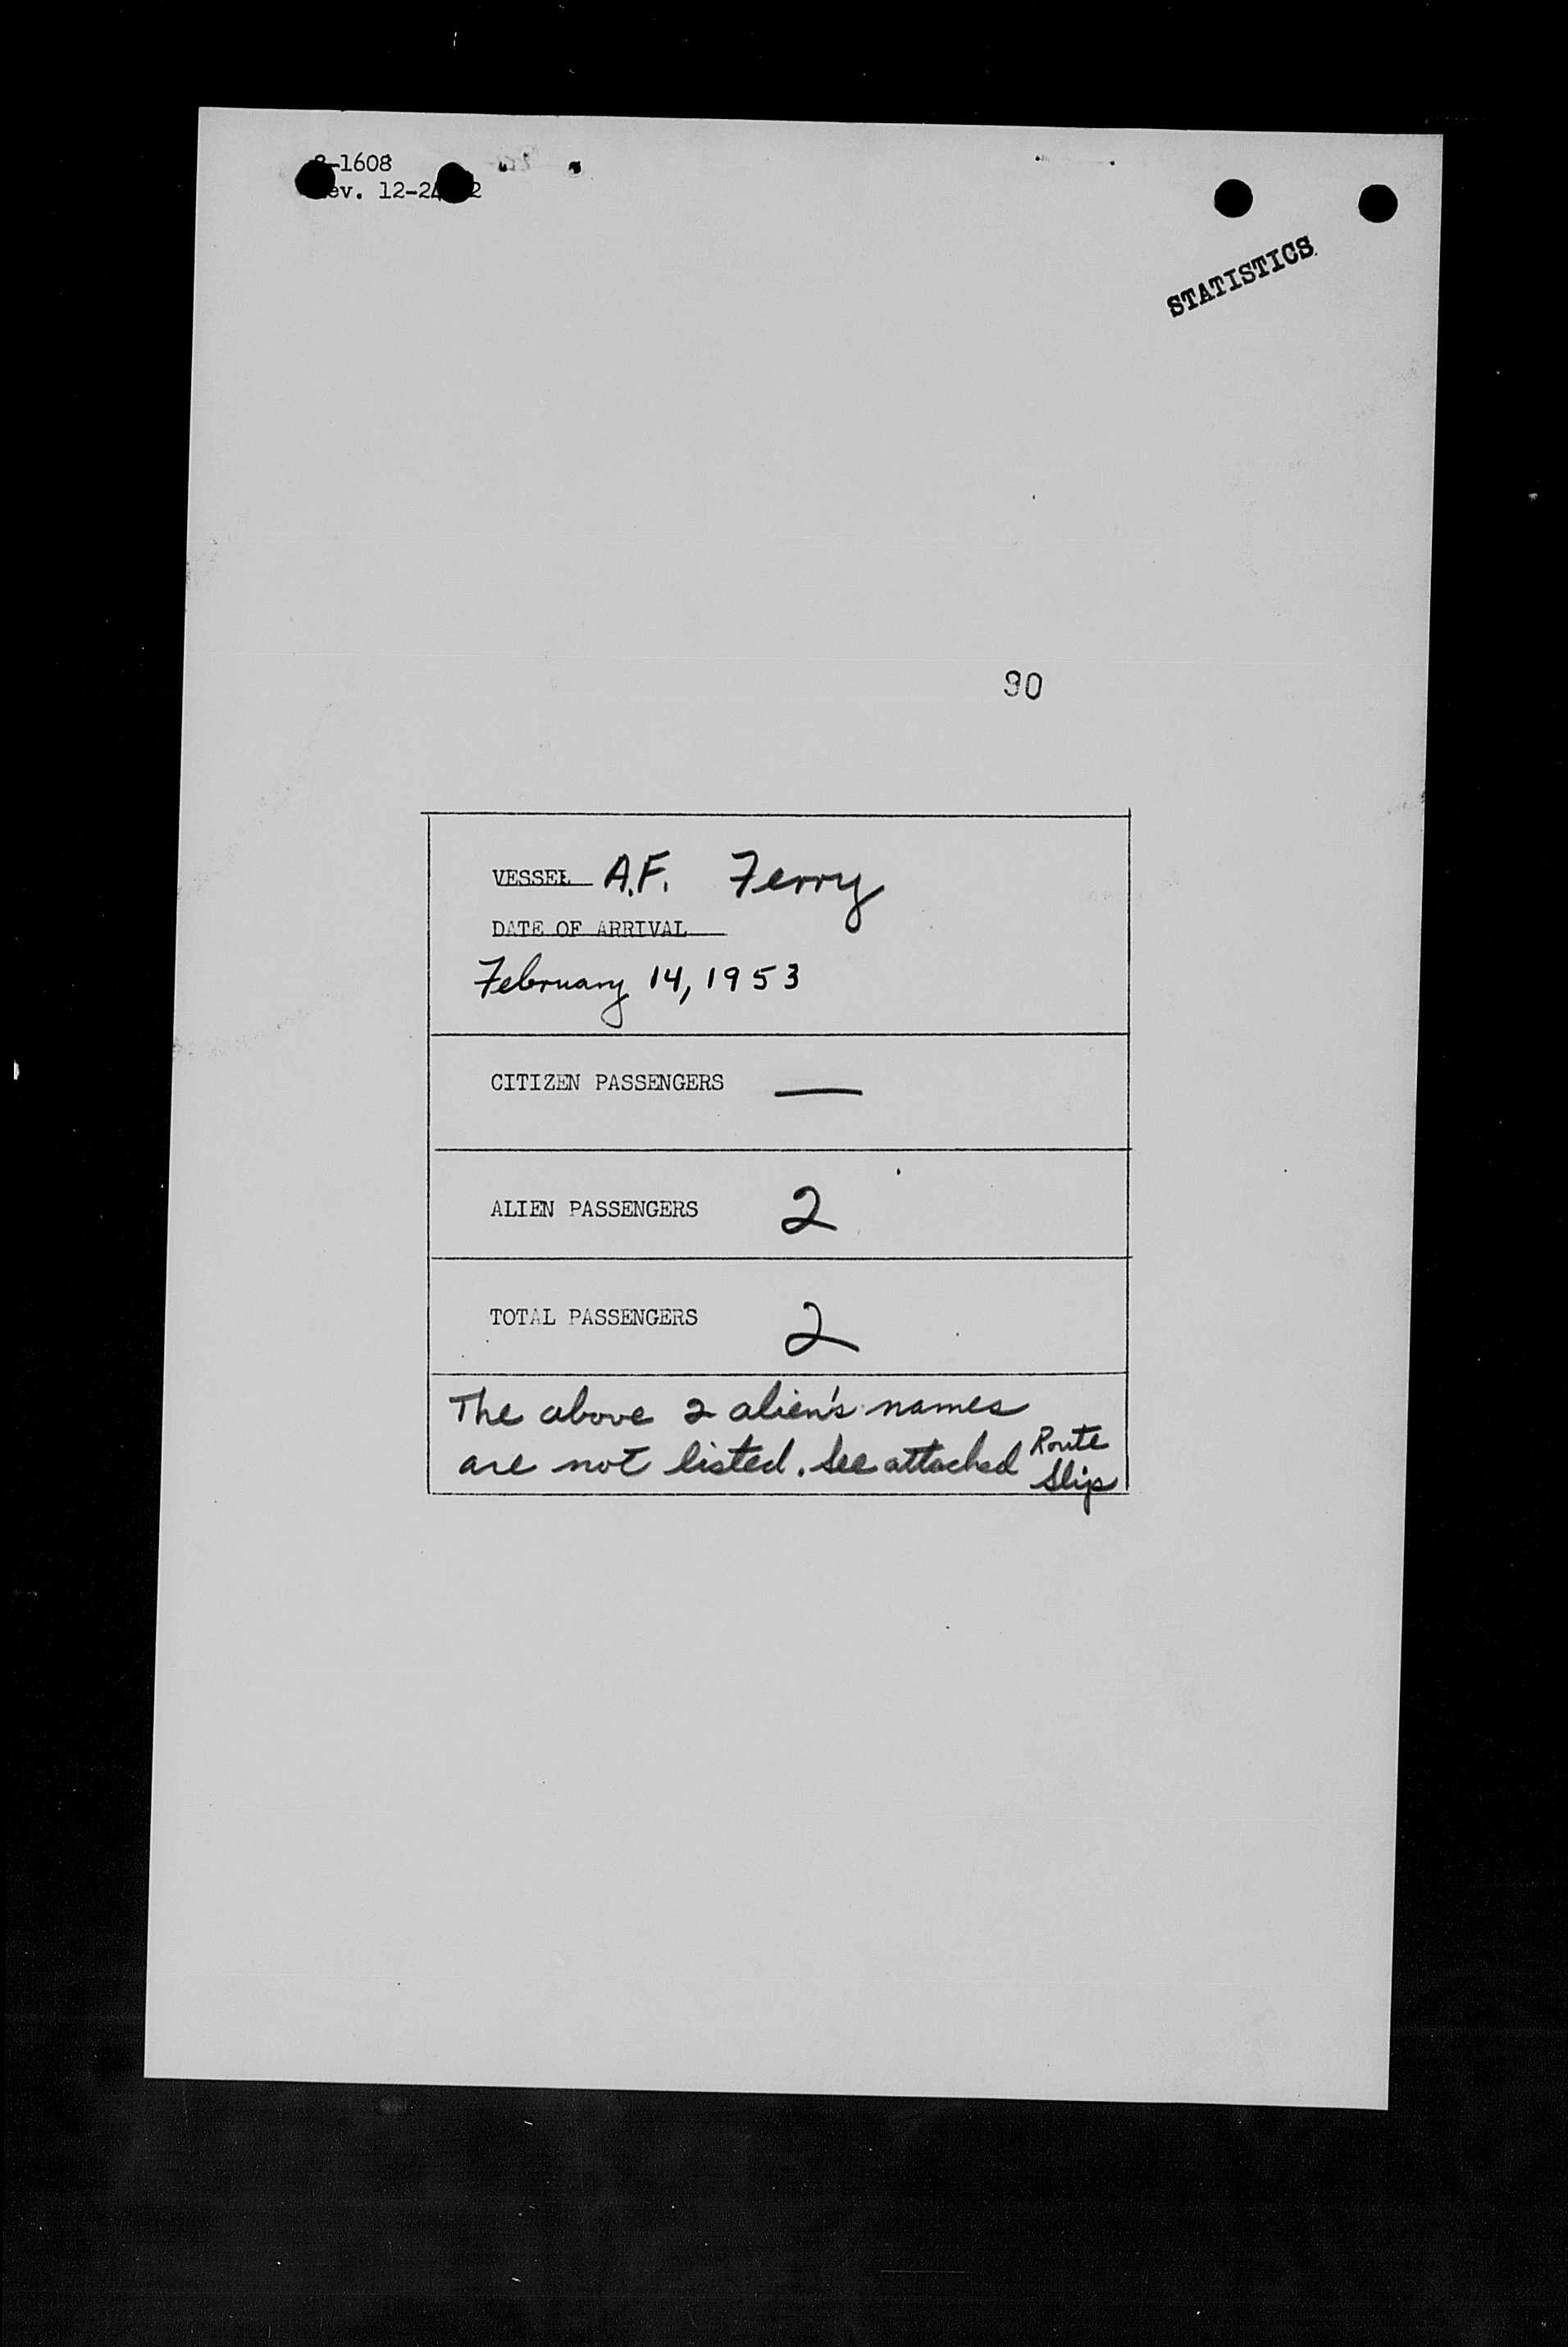 -1608
ev. 12-24 2
STATISTICS
90
VESSEL A.F. Ferry
DATE OF ARRIVAL
February 14, 1953
CITIZEN PASSENGERS —
ALIEN PASSENGERS 2
TOTAL PASSENGERS 2
The above 2 alien's names
are not listed. See attached Route
Slip